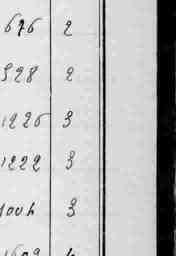 676 2
928 2
1226 3
1222 3
1004 3